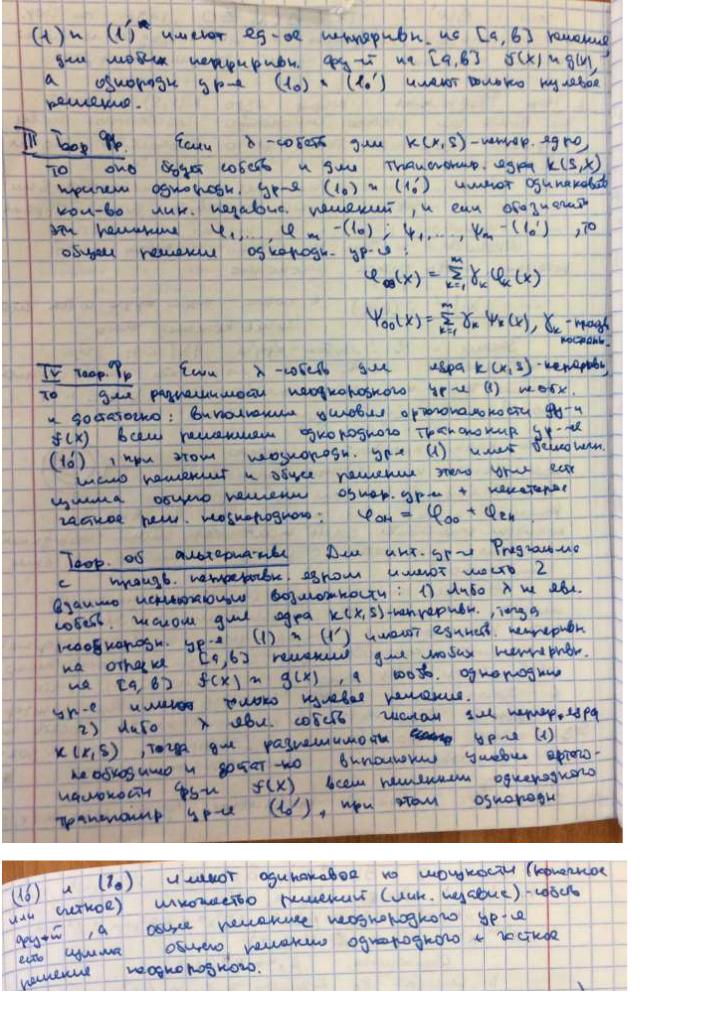 (1) и (1') имеют ед-ое непрерывн. на [a, b] решение,
для любых непрерывн. фу-й на [a, b] f(x) и g(x),
а однородн ур-я (1₀) и (1₀') имеют только нулевое
решение.
III Теор. Фр. Если λ-собств для K(x,s)-непрер. ядро,
то оно будет собств и для транспонир. ядра K(s,x)
причем однородн. ур-я (1₀) и (1₀') имеют одинаков
кол-во лин. независ. решений, и если обозначить
эти решения φ₁,..., φₘ -(1₀); ψ₁,..., ψₘ -(1₀'), то
общем решение однородн. ур-я:
φ₀₀(x) = ∑ₖ₌₁ᵐ γₖ φₖ(x)
ψ₀₀(x) = ∑ₖ₌₁ᵐ γₖ ψₖ(x), γₖ - произв
постоян.
IV теор. Фр Если λ-собств для ядра K(x,s)-непрерывн,
то для разрешимости неоднородного ур-я (1) необх.
и достаточно: выполнение условия ортогональности фу-и
f(x) всем решениям однородного транспонир ур-я
(1₀'), при этом неоднородн. ур-е (1) имеет бесконечн.
число решений и общее решение этого ур-я есть
сумма общего решения однор. ур-я + некоторое
частное реш. неоднородного: φон = φоо + φчн.
Теор. об альтернативе Для инт. ур-я Фредгольма
с произв. непрерывн. ядром имеют место 2
взаимо исключающие возможности: 1) Либо λ не явл.
собств. числом для ядра K(x,s)-непрерывн., тогда
неоднородн. ур-я (1) и (1') имеют единств. непрерывн
на отрезке [a,b] решения для любых непрерывн.
на [a,b] f(x) и g(x), а соотв. однородные
ур-е имеют только нулевое решение.
2) Либо λ явл. собств числом для непрер. ядра
K(x,s), тогда для разрешимости ур-я (1)
необходимо и достат-но выполнения условия ортого-
нальности фу-и f(x) всем решениям однородного
транспонир ур-я (1₀'), при этом однородн
(1₀') и (1₀) имеют одинаковое по мощности (конечное
или счетное) множество решений (лин. независ)-собств
фу-й, а общее решение неоднородного ур-я
есть сумма общего решения однородного + частное
решение неоднородного.